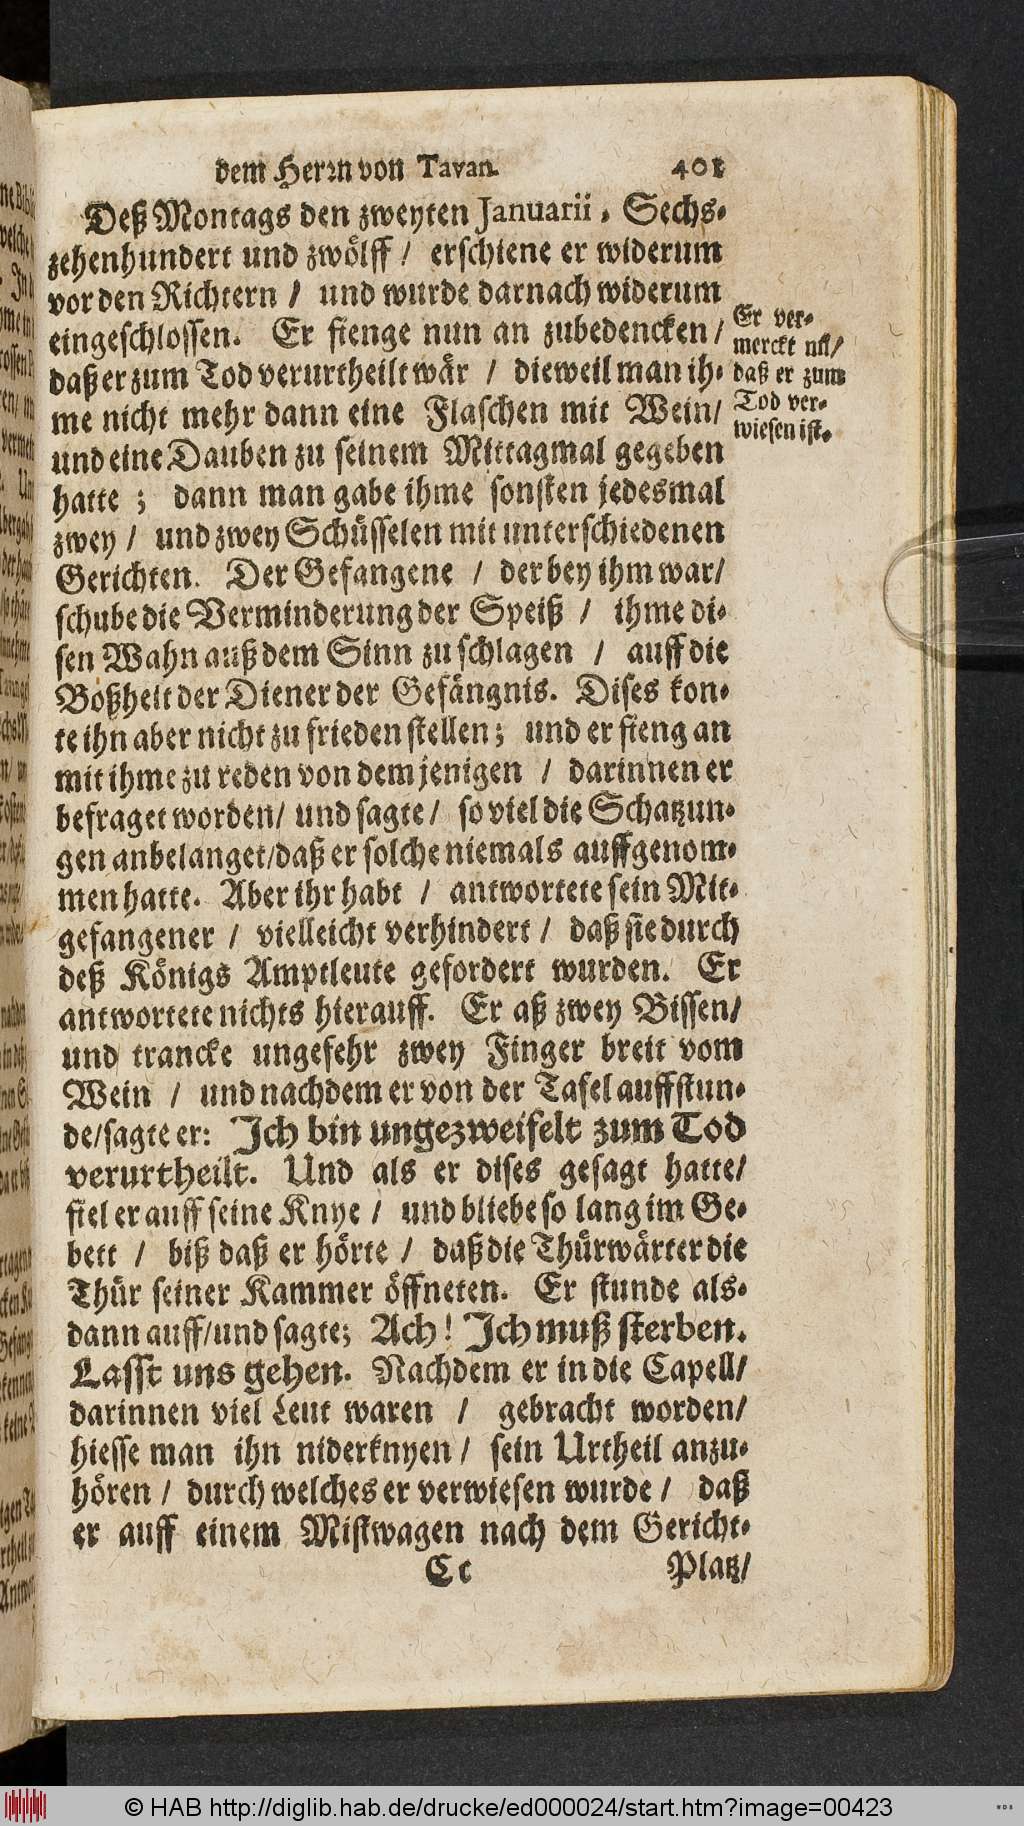 dem Herꝛn von Tavan. 401
Deß Montags den zweyten Januarii, Sechs-
zehenhundert und zwölff / erschiene er widerum
vor den Richtern / und wurde darnach widerum
eingeschlossen. Er fienge nun an zubedencken /
daß er zum Tod verurtheilt wär / dieweil man ih-
me nicht mehr dann eine Flaschen mit Wein /
und eine Dauben zu seinem Mittagmal gegeben
hatte ; dann man gabe ihme sonsten jedesmal
zwey / und zwey Schüsselen mit unterschiedenen
Gerichten. Der Gefangene / der bey ihm war /
schube die Verminderung der Speiß / ihme di-
sen Wahn auß dem Sinn zu schlagen / auff die
Boßheit der Diener der Gefängnis. Dises kon-
te ihn aber nicht zu frieden stellen ; und er fieng an
mit ihme zu reden von dem jenigen / darinnen er
befraget worden / und sagte / so viel die Schatzun-
gen anbelanget / daß er solche niemals auffgenom-
men hatte. Aber ihr habt / antwortete sein Mit-
gefangener / vielleicht verhindert / daß sie durch
deß Königs Amptleute gefordert wurden. Er
antwortete nichts hierauff. Er aß zwey Bissen /
und trancke ungefehr zwey Finger breit vom
Wein / und nachdem er von der Tafel auffstun-
de / sagte er: Ich bin ungezweifelt zum Tod
verurtheilt. Und als er dises gesagt hatte /
fiel er auff seine Knye / und bliebe so lang im Ge-
bett / biß daß er hörte / daß die Thürwärter die
Thür seiner Kammer öffneten. Er stunde als-
dann auff / und sagte; Ach! Ich muß sterben.
Lasst uns gehen. Nachdem er in die Capell /
darinnen viel Leut waren / gebracht worden /
hiesse man ihn niderknyen / sein Urtheil anzu-
hören / durch welches er verwiesen wurde / daß
er auff einem Mistwagen nach dem Gericht-
Cc Platz /
Er ver-
merckt nũ /
daß er zum
Tod ver-
wiesen ist.
© HAB http://diglib.hab.de/drucke/ed000024/start.htm?image=00423